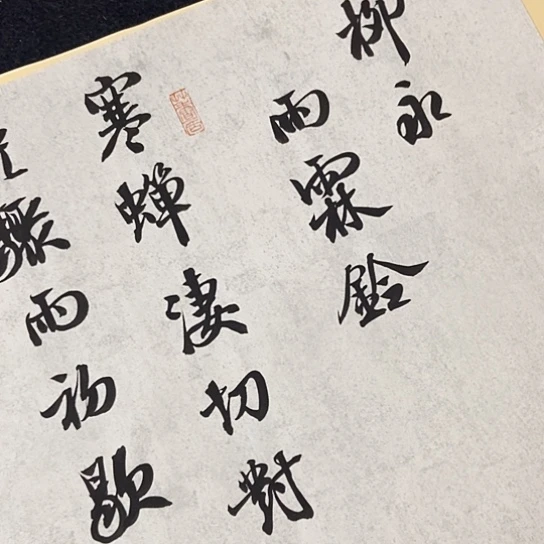 柳永
雨霖鈴
寒蟬淒切對
驟雨初歇